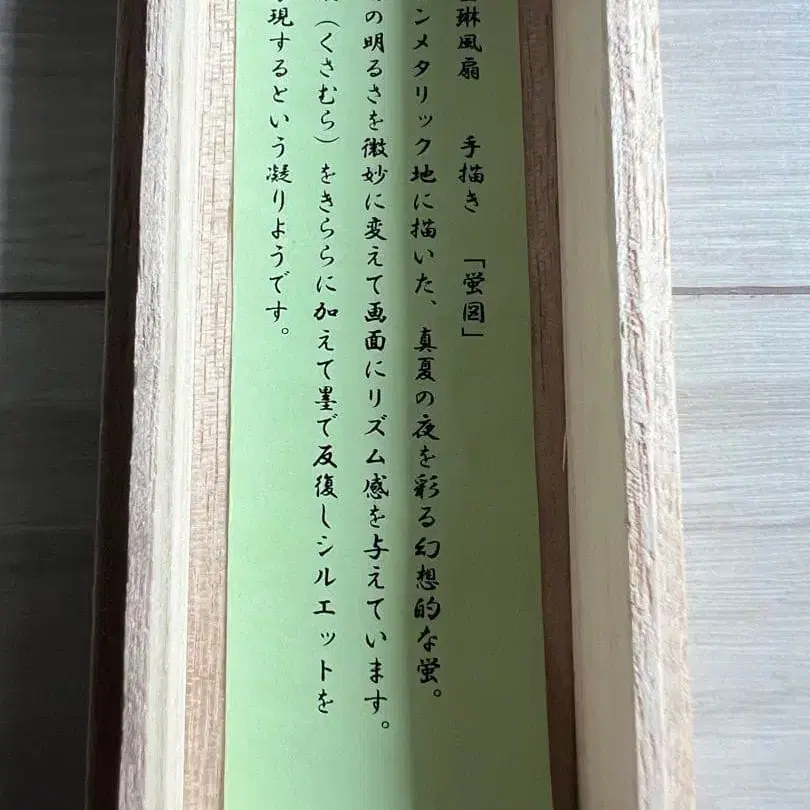 琳風扇 手描き 「蛍図」
ンメタリック地に描いた、真夏の夜を彩る幻想的な蛍。
の明るさを微妙に変えて画面にリズム感を与えています。
（くさむら）をきららに加えて墨で反復しシルエットを
現するという凝りようです。